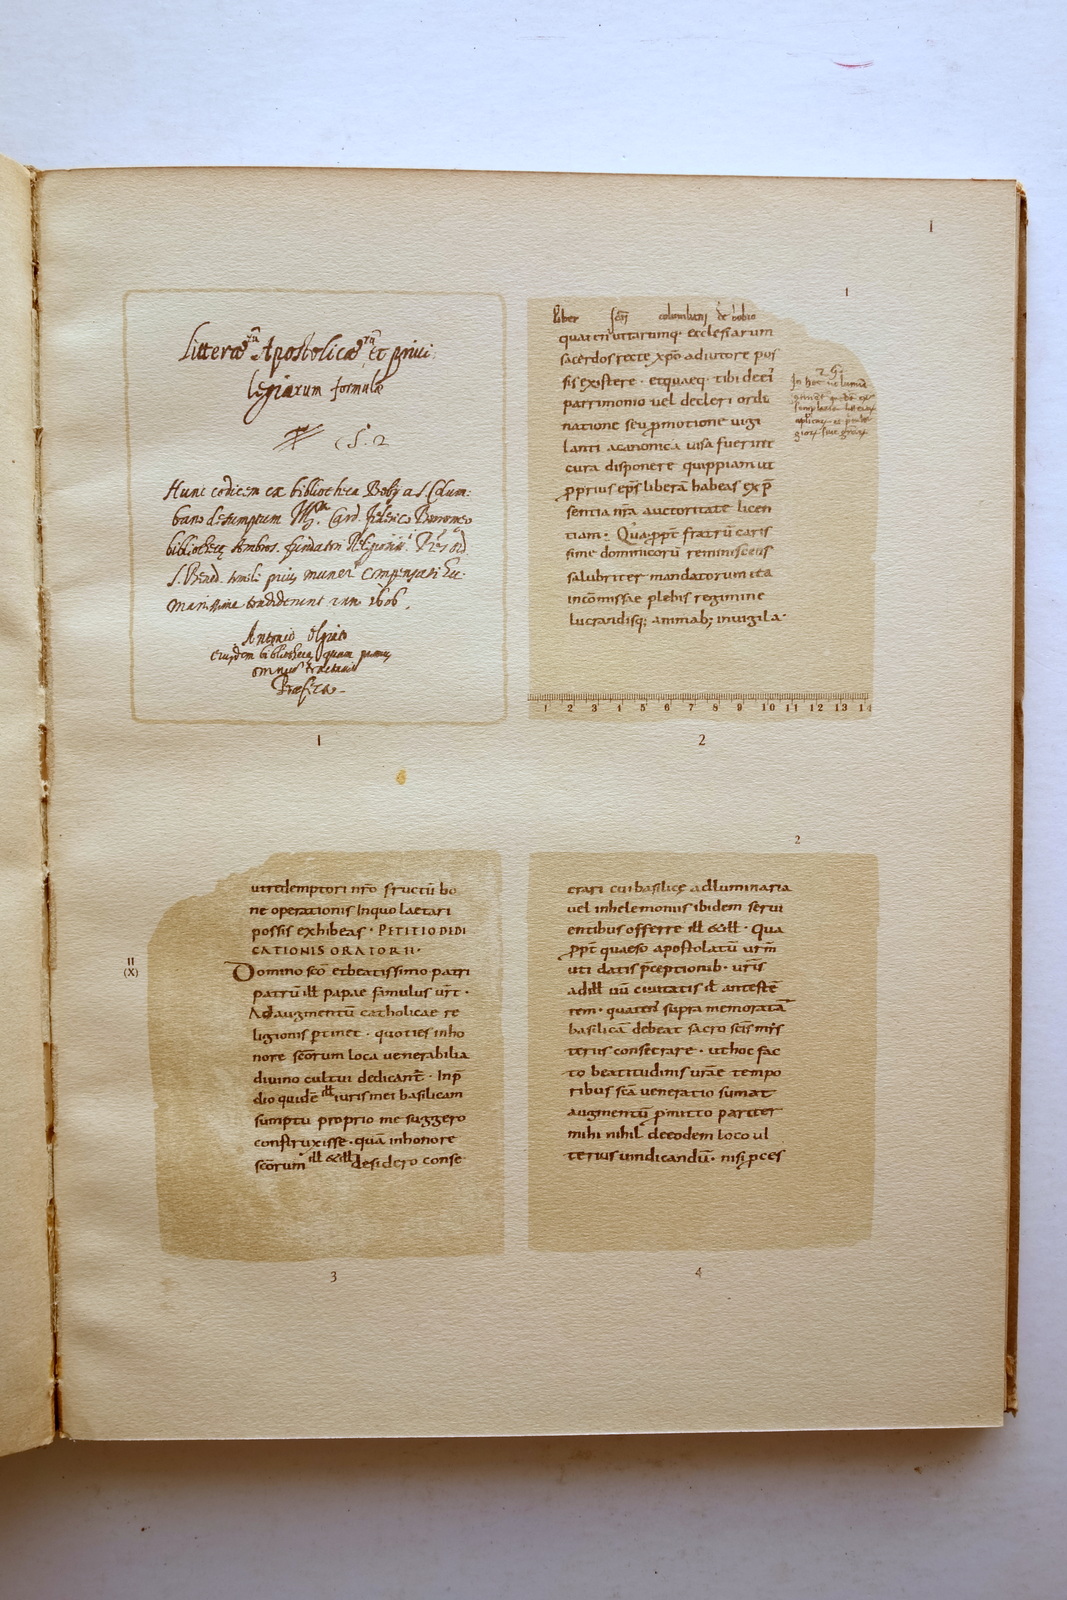 I
Litterarũ Apostolicarũ et priui:
legiarum formulæ
S. 2
Hunc codicem ex bibliotheca Bobij a S. Colum:
bano desumptum Ill. Card. Federico Borromeo
bibliothecę Ambros. fundatori Religiosiss. Pres ord.
S. Bened. simili prius munere compensati hu:
manissime tradiderunt anno 1606.
Antonio Olgiato
eiusdem bibliothecę quam primus
omnium tractauit
Præfecto
1
1
Liber scti columbani de bobio
quaten uttarumq· ecclesiarum
sacerdos recte xpo adiutore pos
sis existere · etquaeq· tibi deei
patrimonio uel decleri ordi
natione seu pmotione uigi
lanti acanonica uisa fuerint
cura disponere quippiam ut
pprius eps liberã habeas ex p
sentia nra auctoritate licen
tiam · Quappt fratrũ caris
sime dominicorũ reminiscens
salubriter mandatorum ita
incõmissae plebis regimine
lucrandisq; animab; inuigila·
In hoc uolumine
1 2 3 4 5 6 7 8 9 10 11 12 13 14
2
II
(X)
utredemptori nro fructũ bo
ne operationis Inquo laetari
possis exhibeas · PETITIO DEDI
CATIONIS ORATORII ·
Domino sco etbeatissimo patri
patrũ ill papae famulus urt ·
Ad augmentũ catholicae re
ligionis ptinet · quoties inho
nore scorum loca venerabilia
diuino cultui dedicant · Inp
dio quidẽ ill iuris mei basilicam
sumptu proprio me suggero
construxisse · quã inhonore
scorum ill & ill desidero conse
3
2
crari cui basilice adluminaria
uel inhelemoniis ibidem serui
entibus offerre ill & ill · Qua
ppt quaeso apostolatũ urm
uti datis pceptionib · uris
adill uiũ ciuitatis il antestẽ
tem · quaten supra memoratã
basilicã debeat sacro scis mys
terus consecrare · uthoc fac
to beatitudinis urae tempo
ribus scã ueneratio sumat
augmentũ pmitto pariter
mihi nihil deeodem loco ul
terius uindicandũ · nisi pces
4